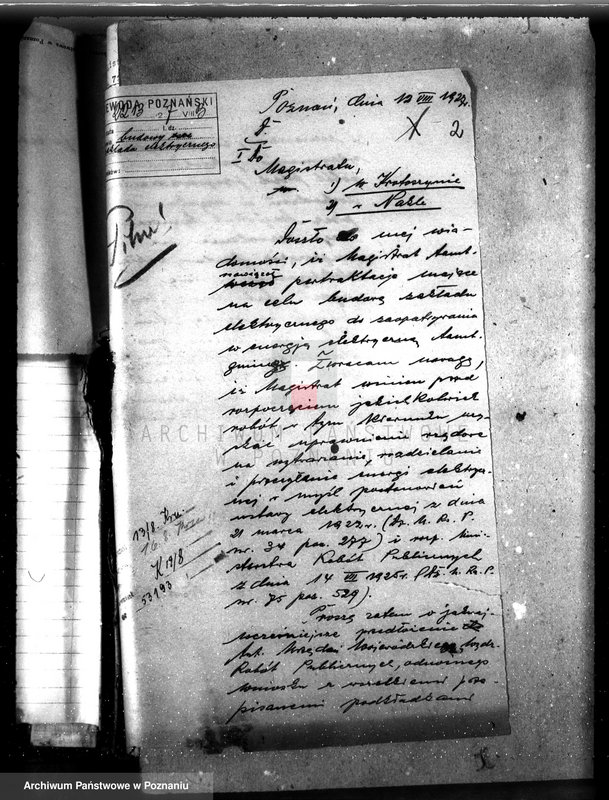 WOJEWODA POZNAŃSKI
2213 27 VIII
l. dz.
budowy
zakładu elektrycznego
Pilne!
Poznań, dnia 12 VIII 1927r.
X 2
Do
Magistratu,
1) w Krotoszynie
2) w Nakle
Doszło do mej wia-
domości, iż Magistrat tamt.
nawiązał pertraktacje mające
na celu budowę zakładu
elektrycznego do zaopatrywania
w energję elektryczną tamt.
gminę. Zwracam uwagę,
iż Magistrat winien przed
rozpoczęciem jakichkolwiek
robót w tym kierunku uzy-
skać uprawnienie rządowe
na wytwarzanie, rozdzielanie
i przesyłanie energji elektrycz-
nej w myśl postanowień
ustawy elektrycznej z dnia
21 marca 1922r. (Dz. U. R. P.
nr. 34 poz. 277) i rozp. Mini-
sterstwa Robót Publicznych
z dnia 14 III 1925r. (Dz. U. R. P.
nr. 75 poz. 529).
Proszę zatem o jaknaj-
wcześniejsze przedłożenie
tut. Urzędowi Wojewódzkiemu,
Robót Publicznych, odnośnego
wniosku z wszelkiemi prze-
pisanemi podkładkami
13/8
16/8
K 17/8
53193
ARCHIWUM PAŃSTWOWE
W POZNANIU
Archiwum Państwowe w Poznaniu